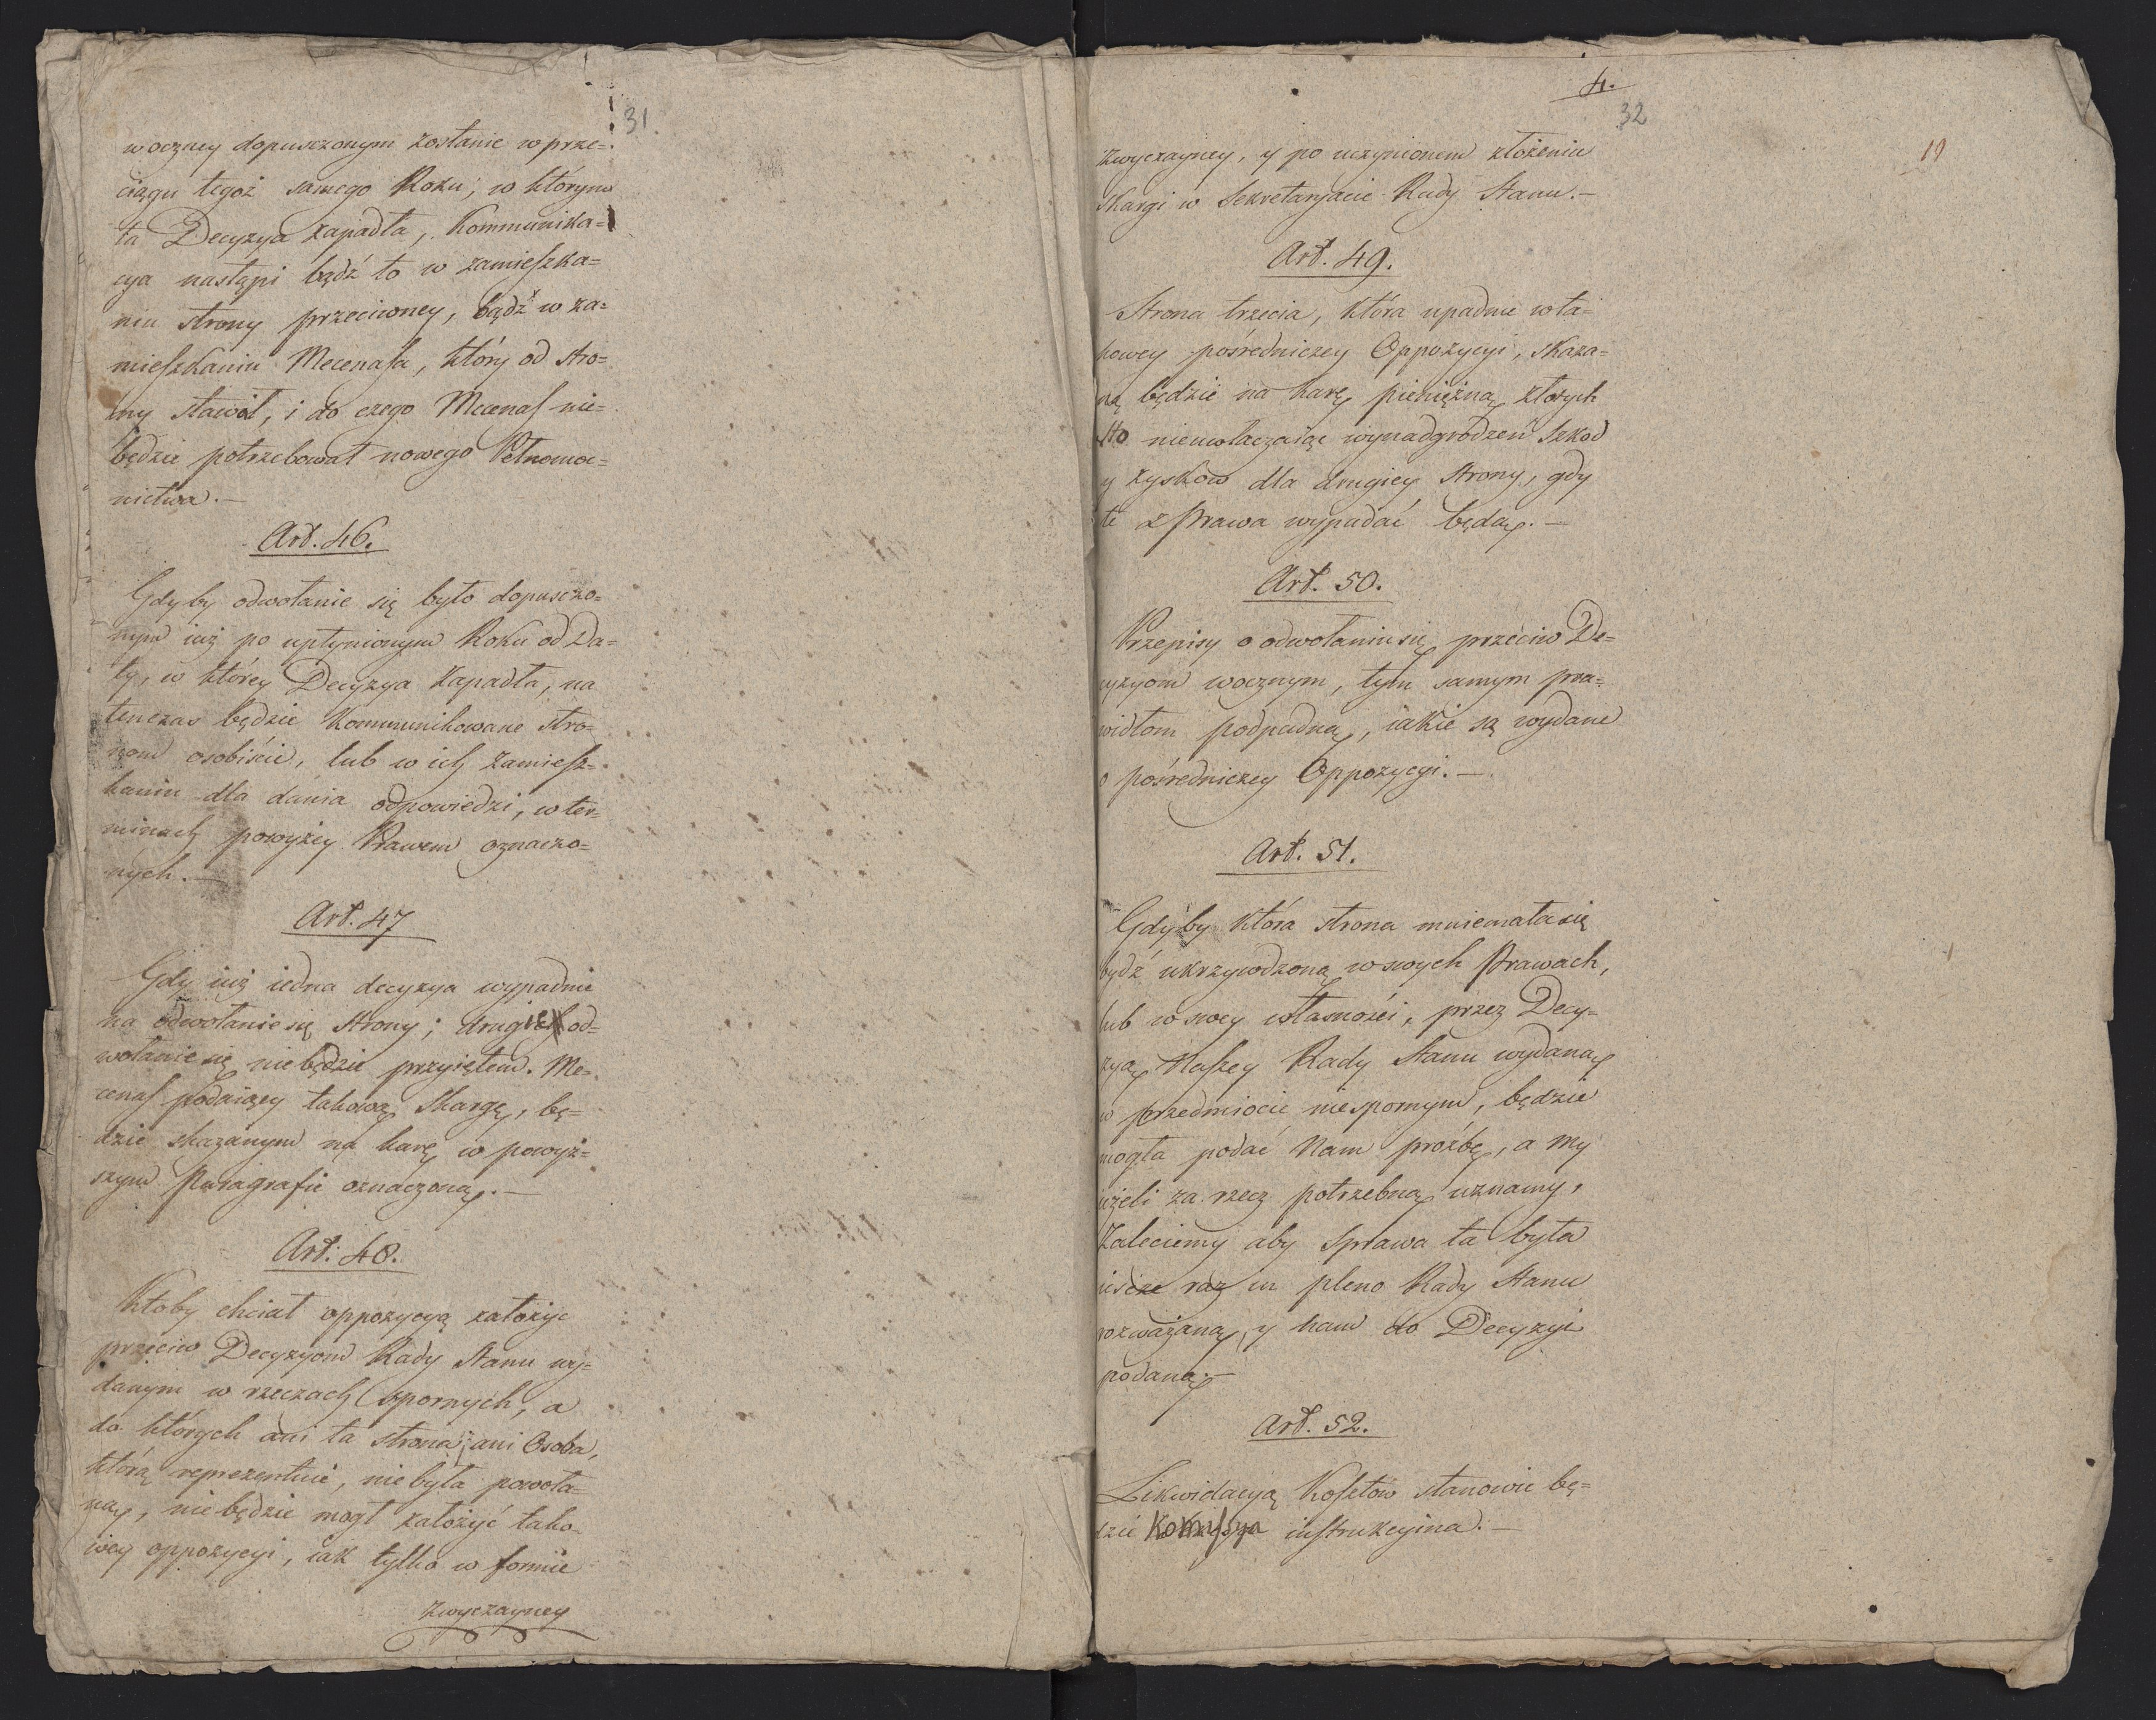 31.
woczney dopusczonym zostanie w prze=
ciągu tegoż samego Roku, w którym
ta Decyzya zapadła, Kommunika=
cya nastąpi bądź to w zamieszka=
niu strony przeciwney, bądź w za=
mieszkaniu Mecenasa, który od stro=
ny stawał, i do czego Mecenas nie=
będzie potrzebował nowego Pełnomoc=
nictwa.—
Art. 46.
Gdyby odwołanie się było dopusczo=
nym iuż po upłynionym Roku od Da=
ty, w którey Decyzya zapadła, na
tenczas będzie Kommunikowane stro=
nom osobiście, lub w ich zamiesz=
kaniu dla dania odpowiedzi, w ter=
minach powyżey Prawem oznaczo=
nych.—
Art. 47
Gdy iuż iedna decyzya wypadnie
na odwołanie się strony; drugie od=
wołanie się niebędzie przyiętem. Me=
cenas podaiący takową skargę, bę=
dzie skazanym na karę w powyż=
szym Paragrafie oznaczoną.—
Art: 48.
Ktoby chciał oppozycyą założyć
przeciw Decyzyom Rady Stanu wy=
danym w rzeczach spornych, a
do których ani ta strona, ani Osoba,
którą reprezentuie, nie była powoła=
ną, niebędzie mogł założyć tako=
wey oppozycyi, iak tylko w formie
zwyczayney
4.
32
19
zwyczayney, y po uczynionem złożeniu
skargi w Sekretaryacie Rady Stanu.—
Art. 49.
Strona trzecia, która upadnie w ta=
kowey pośredniczey Oppozycyi, skaza=
ną będzie na karę pieniężną złotych
sto nieuwłaczaiąc wynadgrodzeń szkod
y zysków dla drugiey strony, gdy
te z Prawa wypadać będą.—
Art. 50.
Przepisy o odwołaniu się przeciw De=
cyzyom wocznym, tym samym pra=
widłom podpadną, iakie są wydane
o pośredniczey Oppozycyi.—
Art. 51.
Gdyby która strona mniemała się
bydź ukrzywdzoną w swych Prawach,
lub w swey własności, przez Decy=
zyą Naszey Rady Stanu wydaną
w przedmiocie niespornym, będzie
mogła podać Nam proźbę, a My
ieżeli za rzecz potrzebną uznamy,
Zaleciemy aby sprawa ta była
iescze raz in pleno Rady Stanu
rozważaną, y Nam do Decyzyi
podaną.—
Art. 52.
Likwidacyą Kosztów stanowić bę=
dzie Komissya instrukcyina.—